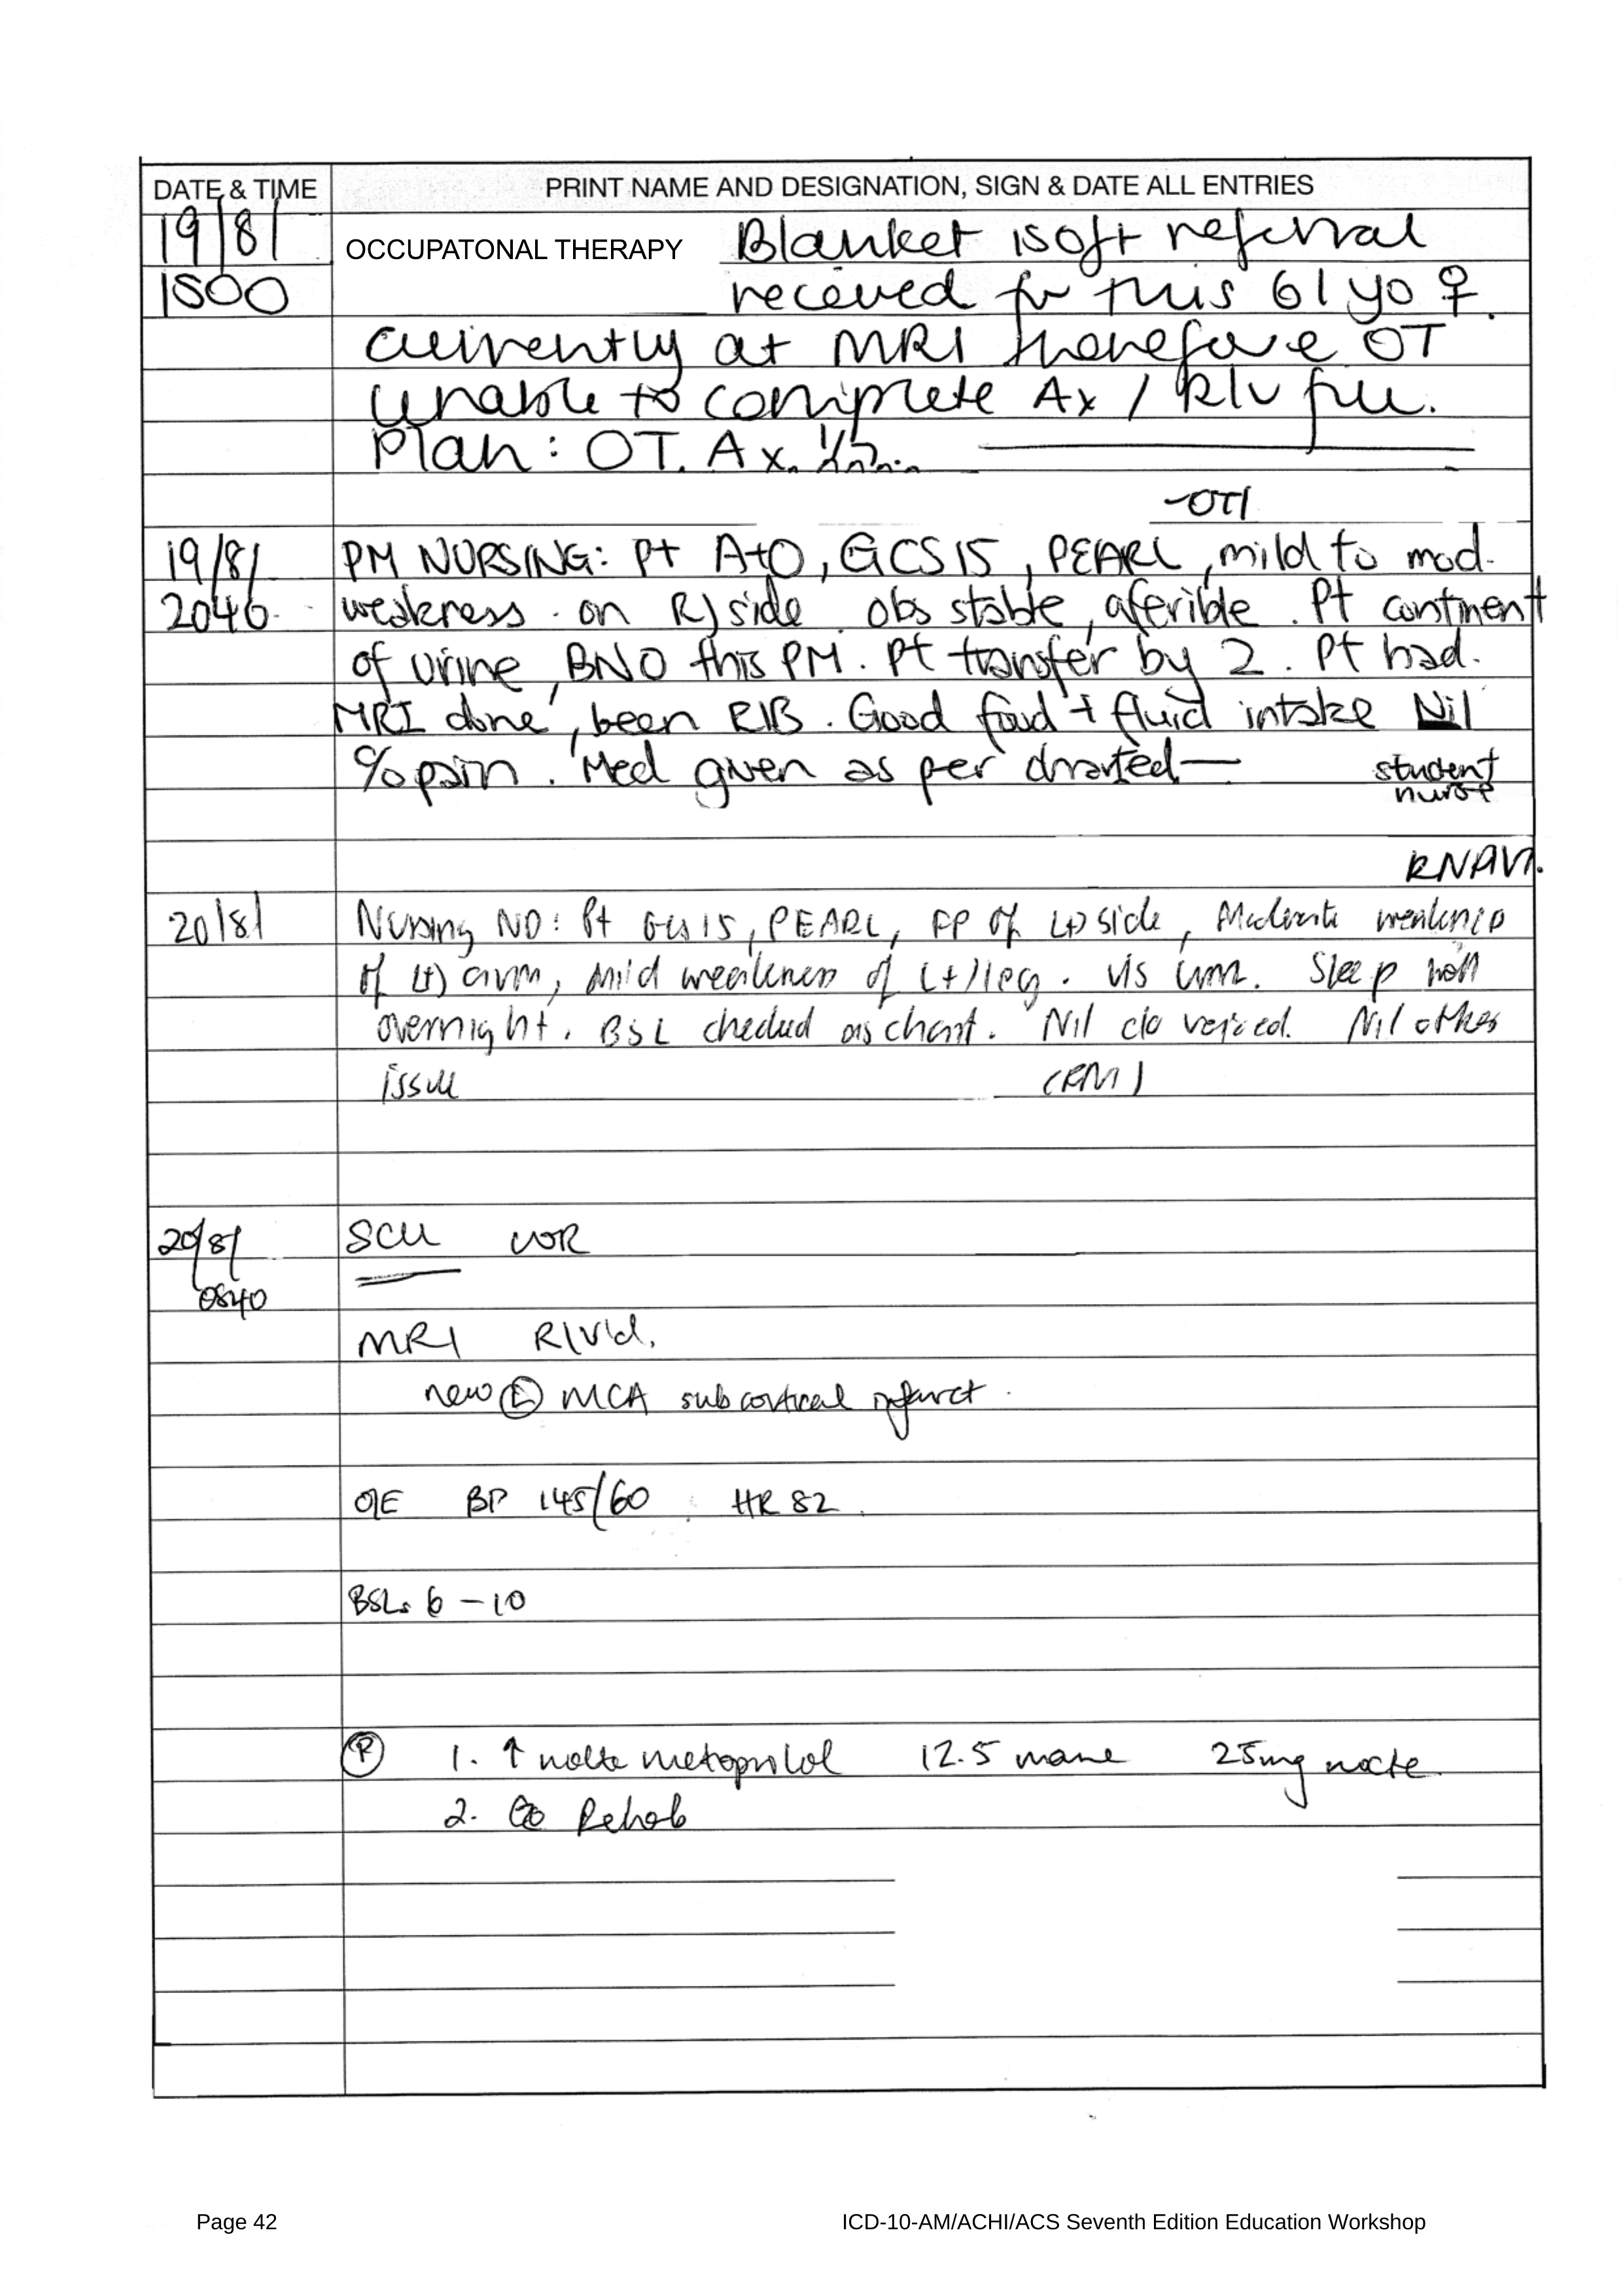 DATE & TIME PRINT NAME AND DESIGNATION, SIGN & DATE ALL ENTRIES
19/8/ OCCUPATONAL THERAPY Blanket isoft referral
1500 received for this 61 yo ♀.
currently at MRI therefore OT
unable to complete Ax / R/v
Plan: OT. Ax.
-OT1
19/8/ PM NURSING: Pt A+O, GCS 15, PEARL, mild to mod.
2040 weakness on R) side. obs stable, aferible. Pt continent
of urine, BNO this PM. Pt transfer by 2. Pt had.
MRI done, been RIB. Good food + fluid intake Nil
c/o pain. Med given as per charted— student
nurse
RNAV1.
20/8/ Nursing ND: Pt GCS 15, PEARL, FP of Lt) side, Moderate weakness
of Lt) arm, mild weakness of Lt) leg. Sleep well
overnight. BSL checked as chart. Nil c/o voiced. Nil other
issue
20/8/ SCU WR
0840
MRI R/V'd.
new Ⓛ MCA subcortical infarct.
O/E BP 145/60 HR 82
BSLs 6 – 10
Ⓟ 1. ↑ nocte metoprolol 12.5 mane 25mg nocte
2. Rehab
Page 42 ICD-10-AM/ACHI/ACS Seventh Edition Education Workshop